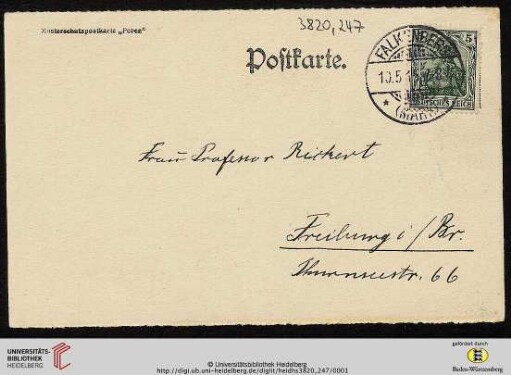 3820,247
Musterschutzpostkarte „Pöben"
Postkarte.
FALKENBERG
10.5.1
(MARK)
5
DEUTSCHES REICH
Frau Professor Rickert
Freiburg i/Br.
Thurnseestr. 66
UNIVERSITÄTS-
BIBLIOTHEK
HEIDELBERG
© Universitätsbibliothek Heidelberg
http://digi.ub.uni-heidelberg.de/diglit/heidhs3820_247/0001
gefördert durch
Baden-Württemberg